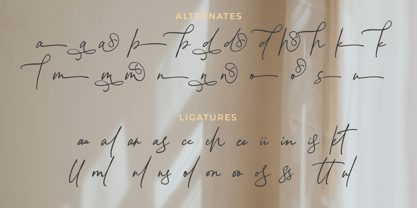 ALTERNATES
a a a b b d d d h h k k
T m m m n n n o o s u
LIGATURES
aa al an as cc ch ee ii in is kt
ll ml nl ns ol on oo os ss tt ul